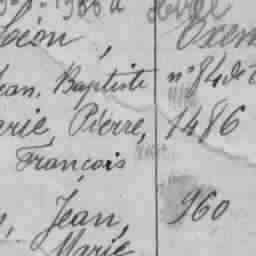 Léon,
Jean, Baptiste n° 84 de
Marie, Pierre, 1486
François
Jean, 960
Marie